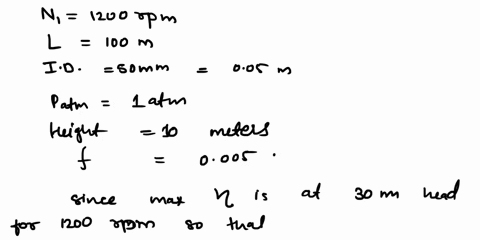 N₁ = 1200 rpm
L = 100 m
I.D. = 50mm = 0.05 m
Patm = 1 atm
Height = 10 meters
f = 0.005 .
since max η is at 30 m head
for 1200 rpm so that